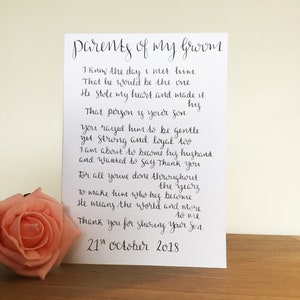 Parents of my Groom
I knew the day I met him
That he would be the one
He stole my heart and made it
his
That person is your son
You rayed him to be gentle
yet strong and loyal too
I am about to become his husband
and wanted to say Thank you
For all you've done throughout
the years
To make him who his become
He means the world and more
to me
Thank you for sharing your son
21st October 2018